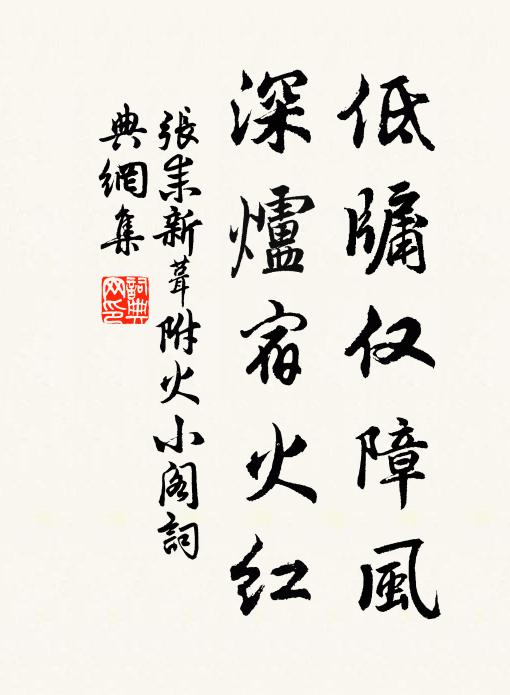 低牖仅障風
深爐宿火紅
張耒新葺附火小阁詞
典網集
詞典
网印